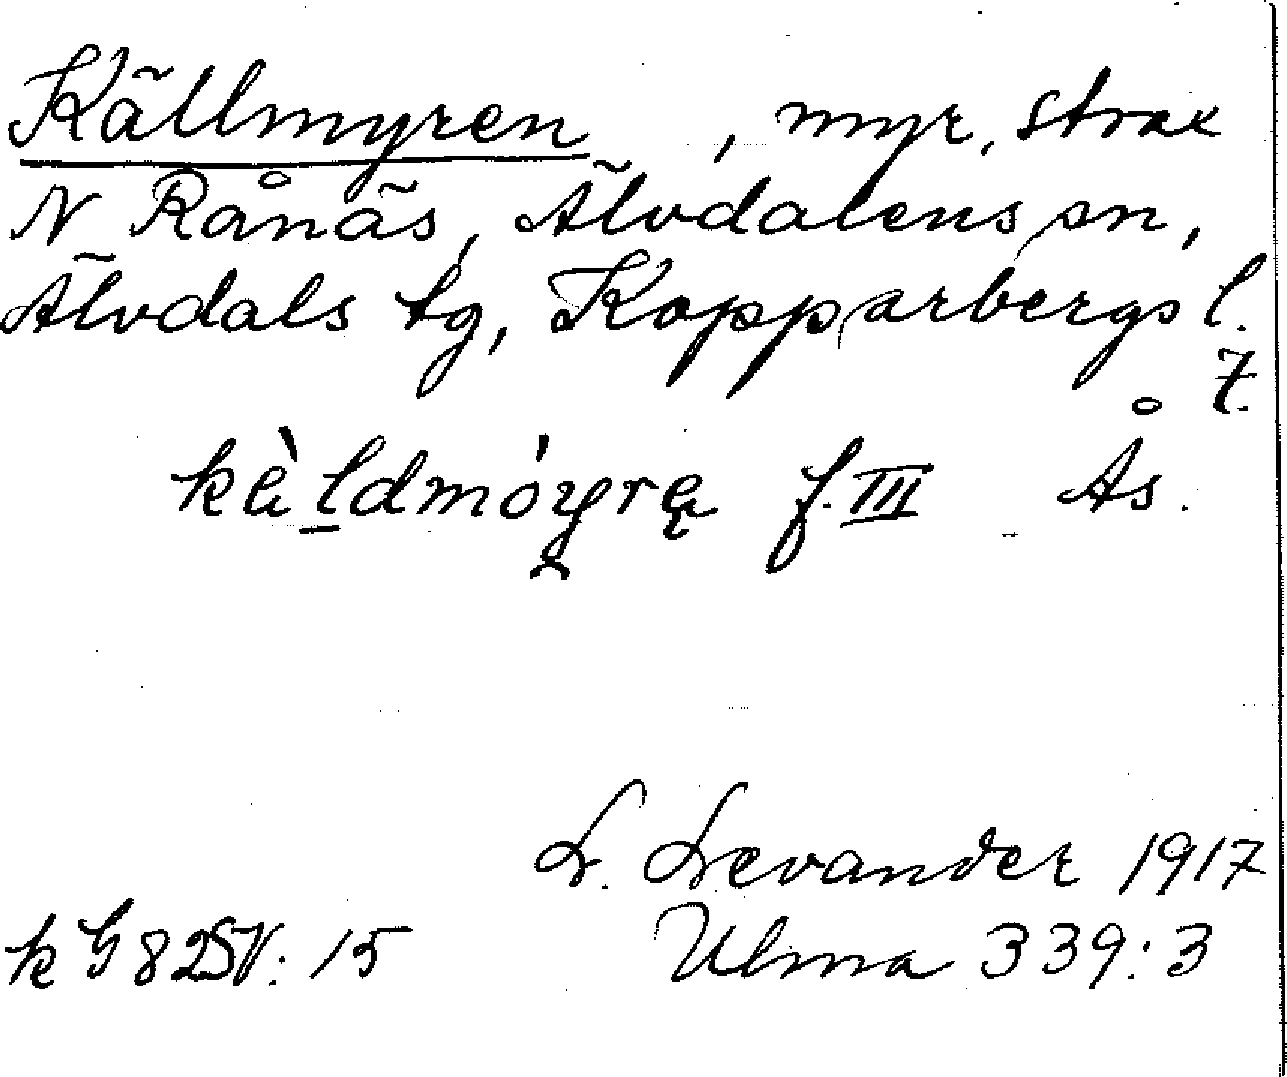 Källmyren, myr, strax
N Rånäs, Älvdalens sn,
Älvdals tg, Kopparbergs l.
7.
kèldmóyrę f. III Ås.
L. Levander 1917
k G 82SV: 15 Ulma 339:3